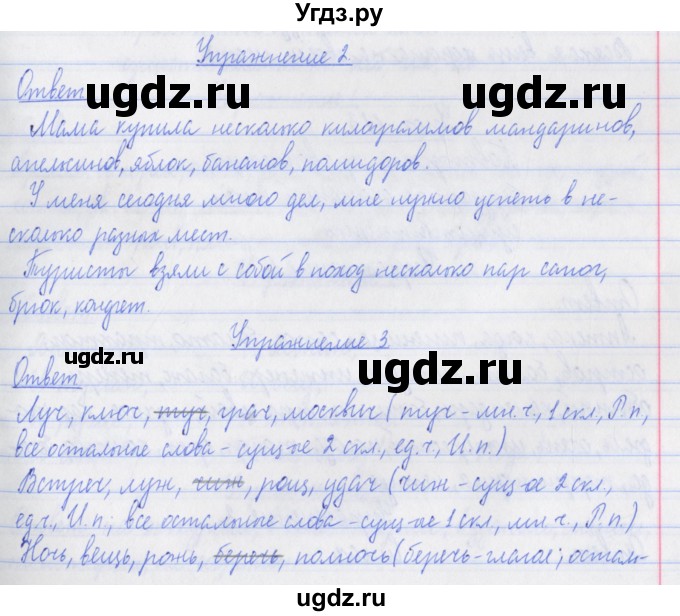 Угдз.ру
Упражнение 2
Ответ
ugdz.ru ugdz.ru
Мама купила несколько килограммов мандаринов,
апельсинов, яблок, бананов, помидоров.
У меня сегодня много дел, мне нужно успеть в не-
сколько разных мест.
Туристы взяли с собой в поход несколько пар сапог,
брюк, конфет.
Упражнение 3
ugdz.ru
Ответ
ugdz.ru
Луч, ключ, туч, грач, москвич (туч - мн.ч., 1 скл., Р.п,
все остальные слова - сущ-ые 2 скл., ед.ч., И.п.)
Встреч, луж, чиж, рощ, удач (чиж - сущ-ое 2 скл.,
ед.ч., И.п.; все остальные слова - сущ-ые 1 скл, мн.ч., Р.п.)
Ночь, вещь, рожь, беречь, полночь (беречь - глагол; осталь-
ugdz.ru ugdz.ru